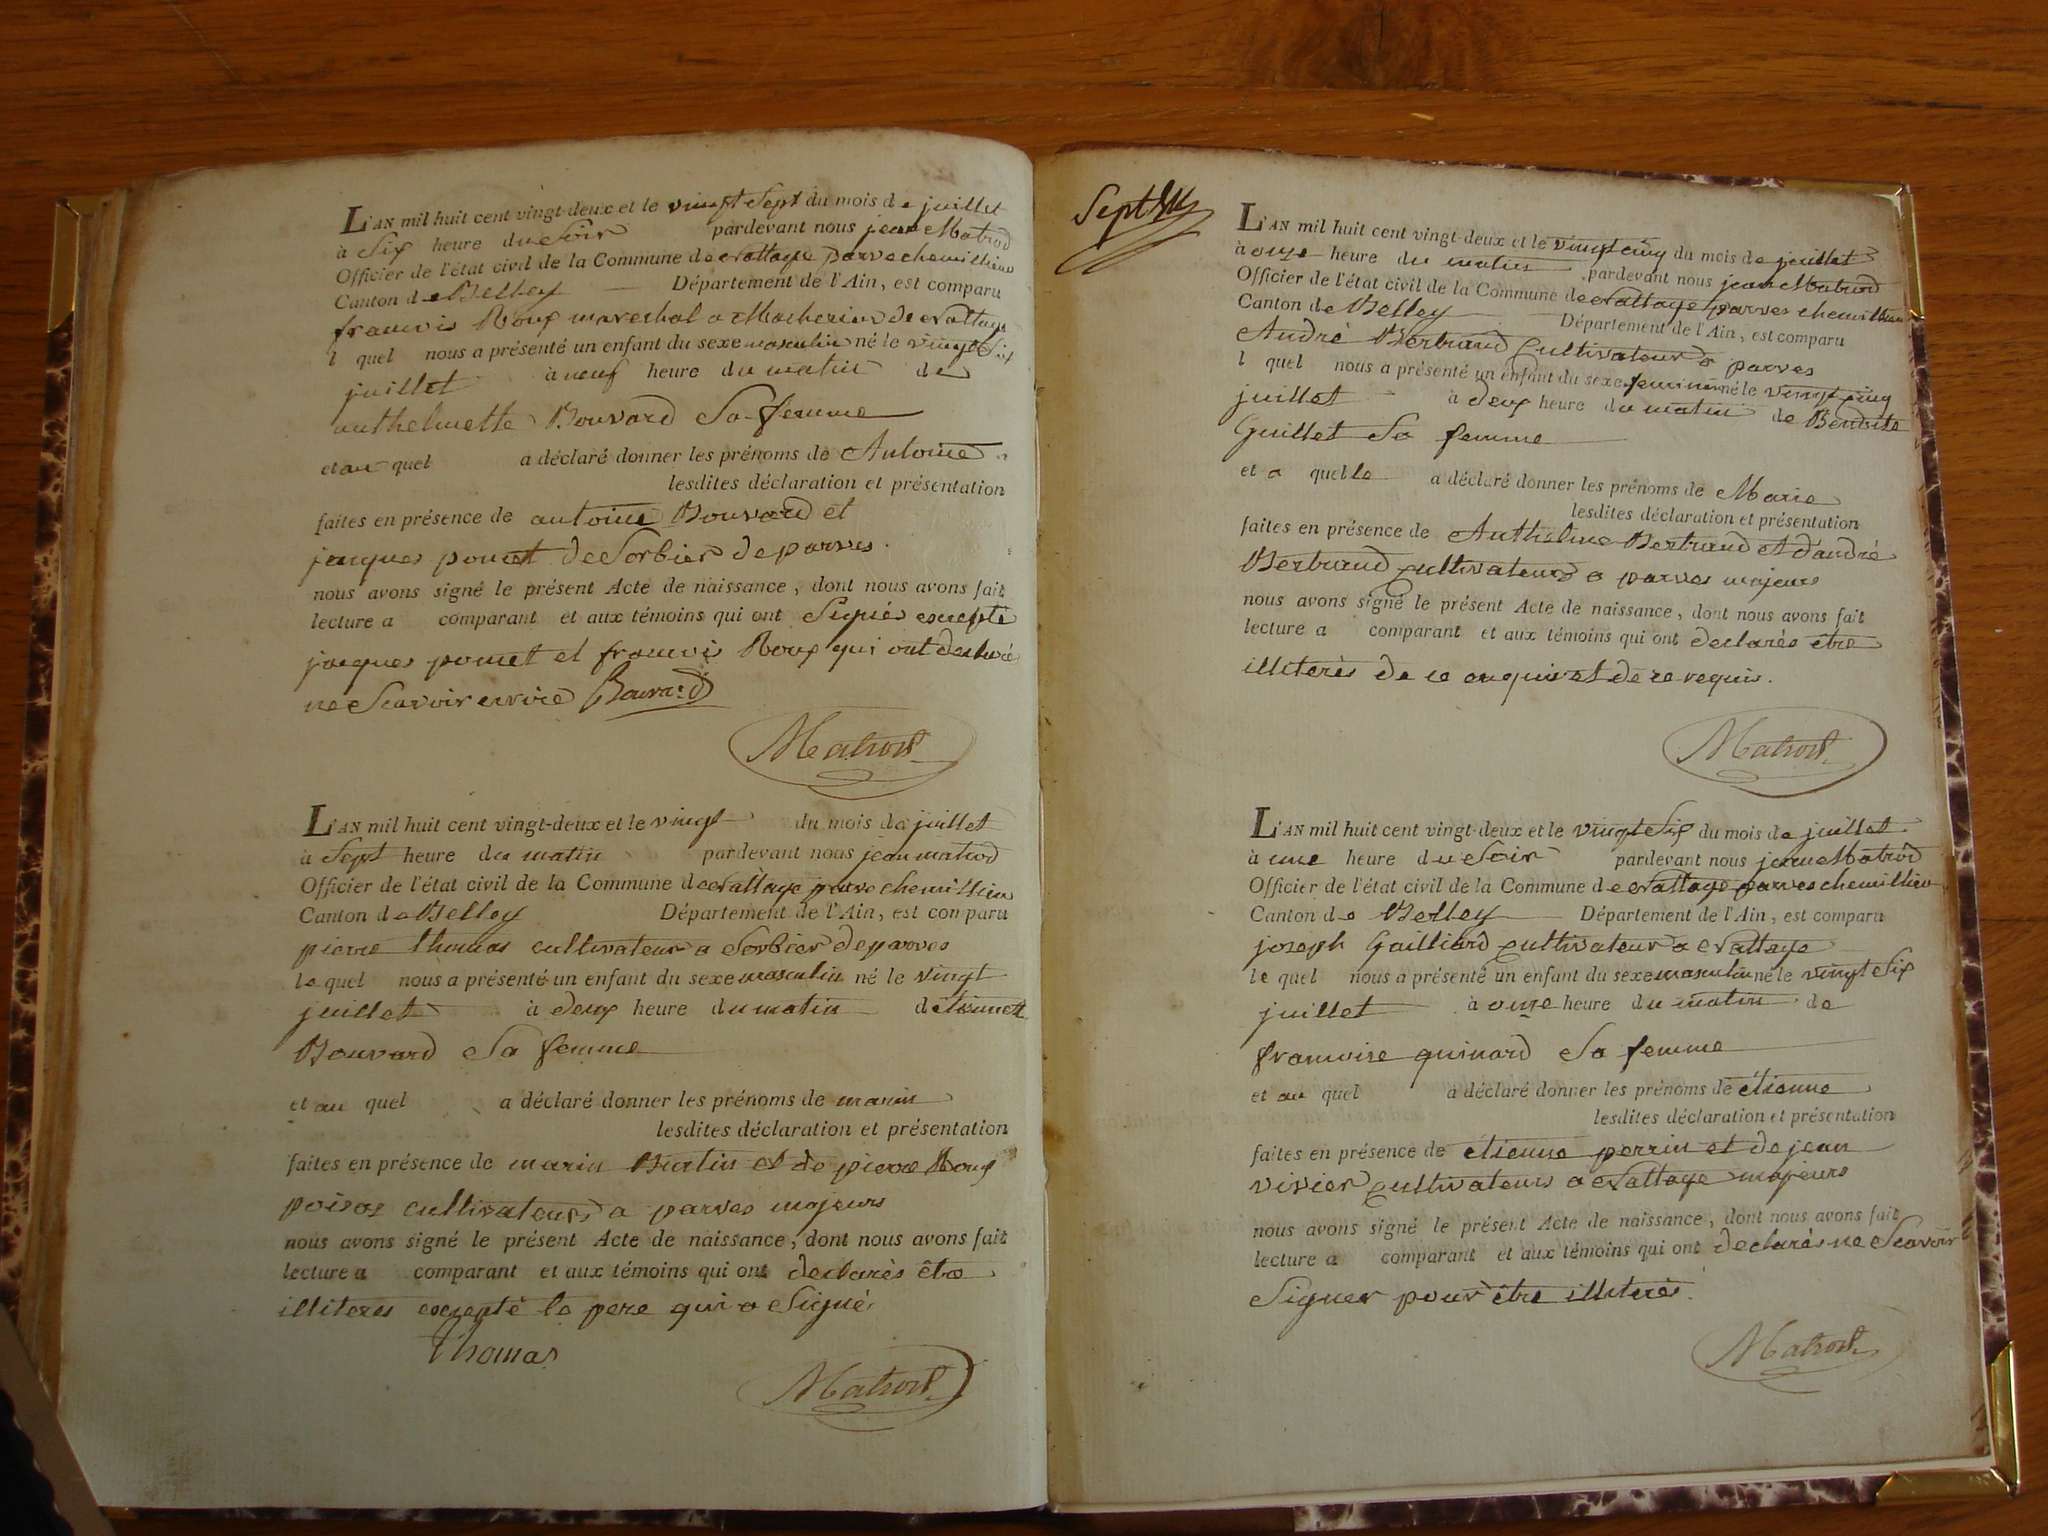 L'AN mil huit cent vingt-deux et le vingt Sept du mois de juillet
à Six heure du Soir pardevant nous jean Matrod
Officier de l'état civil de la Commune de parve chemillieu
Canton de Belley Département de l'Ain, est comparu
francois Roux marechal a de
l quel nous a présenté un enfant du sexe masculin né le vingt Six
juillet à neuf heure du matin de
anthelmette Bouvard Sa femme
et au quel a déclaré donner les prénoms de Antoine
lesdites déclaration et présentation
faites en présence de antoine Bouvard et
jacques ponet de Sorbier de parves.
nous avons signé le présent Acte de naissance, dont nous avons fait
lecture a comparant et aux témoins qui ont Signés excepte
jacques ponet et francois Roux qui ont declaré
ne Scavoir ecrire Bouvard
Matrod
L'AN mil huit cent vingt-deux et le vingt du mois de juillet
à Sept heure du matin pardevant nous jean matrod
Officier de l'état civil de la Commune de parve chemillieu
Canton de Belley Département de l'Ain, est comparu
pierre thomas cultivateur a Sorbier de parves
le quel nous a présenté un enfant du sexe masculin né le vingt
juillet à deux heure du matin d'étiennette
Bouvard Sa femme
et au quel a déclaré donner les prénoms de marin
lesdites déclaration et présentation
faites en présence de marin et de pierre Roux
cultivateurs a parves majeurs
nous avons signé le présent Acte de naissance, dont nous avons fait
lecture a comparant et aux témoins qui ont declarés être
illiteres excepté le pere qui a Signé.
Thomas
Matrod
Sept
L'AN mil huit cent vingt-deux et le vingt cinq du mois de juillet
à onze heure du matin pardevant nous jean Matrod
Officier de l'état civil de la Commune de parves chemillieu
Canton de Belley Département de l'Ain, est comparu
André Bertrand cultivateur a parves
l quel nous a présenté un enfant du sexe feminin né le vingt cinq
juillet à deux heure du matin de Benoite
Guillet Sa femme
et a quelle a déclaré donner les prénoms de Marie
lesdites déclaration et présentation
faites en présence de Anthelme Bertrand et d'andré
Bertrand cultivateurs a parves majeurs
nous avons signé le présent Acte de naissance, dont nous avons fait
lecture a comparant et aux témoins qui ont declarés être
illiterés de ce enquis et de ce requis.
Matrod
L'AN mil huit cent vingt-deux et le vingt Six du mois de juillet
à une heure du Soir pardevant nous jean Matrod
Officier de l'état civil de la Commune de parves chemillieu
Canton de Belley Département de l'Ain, est comparu
joseph Gailliard cultivateur a
le quel nous a présenté un enfant du sexe masculin né le vingt Six
juillet à onze heure du matin de
francoise guinard Sa femme
et au quel a déclaré donner les prénoms de étienne
lesdites déclaration et présentation
faites en présence de étienne perrin et de jean
vivier cultivateurs a majeurs
nous avons signé le présent Acte de naissance, dont nous avons fait
lecture a comparant et aux témoins qui ont declarés ne Scavoir
Signer pour être illiterés.
Matrod